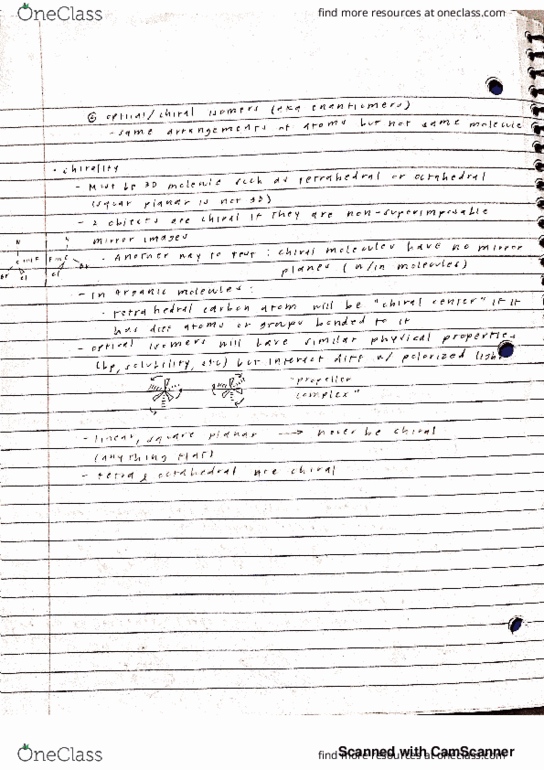 OneClass
find more resources at oneclass.com
⑥ optical/chiral isomers (aka enantiomers)
- same arrangements of atoms but not same molecule
• chirality
- Must be 3D molecule such as tetrahedral or octahedral
(squar planar is not 3D)
- 2 objects are chiral if they are non-superimposable
mirror images
• Another way to test : chiral molecules have no mirror
planes (w/in molecules)
- in organic molecules :
• tetrahedral carbon atom will be "chiral center" if it
has diff atoms or groups bonded to it
- optical isomers will have similar physical properties
(bp, solubility, etc) but interact diff w/ polarized light
"propeller
complex"
- linear, square planar → never be chiral
(anything flat)
- tetra & octahedral are chiral
OneClass
find more resources at oneclass.com
Scanned with CamScanner